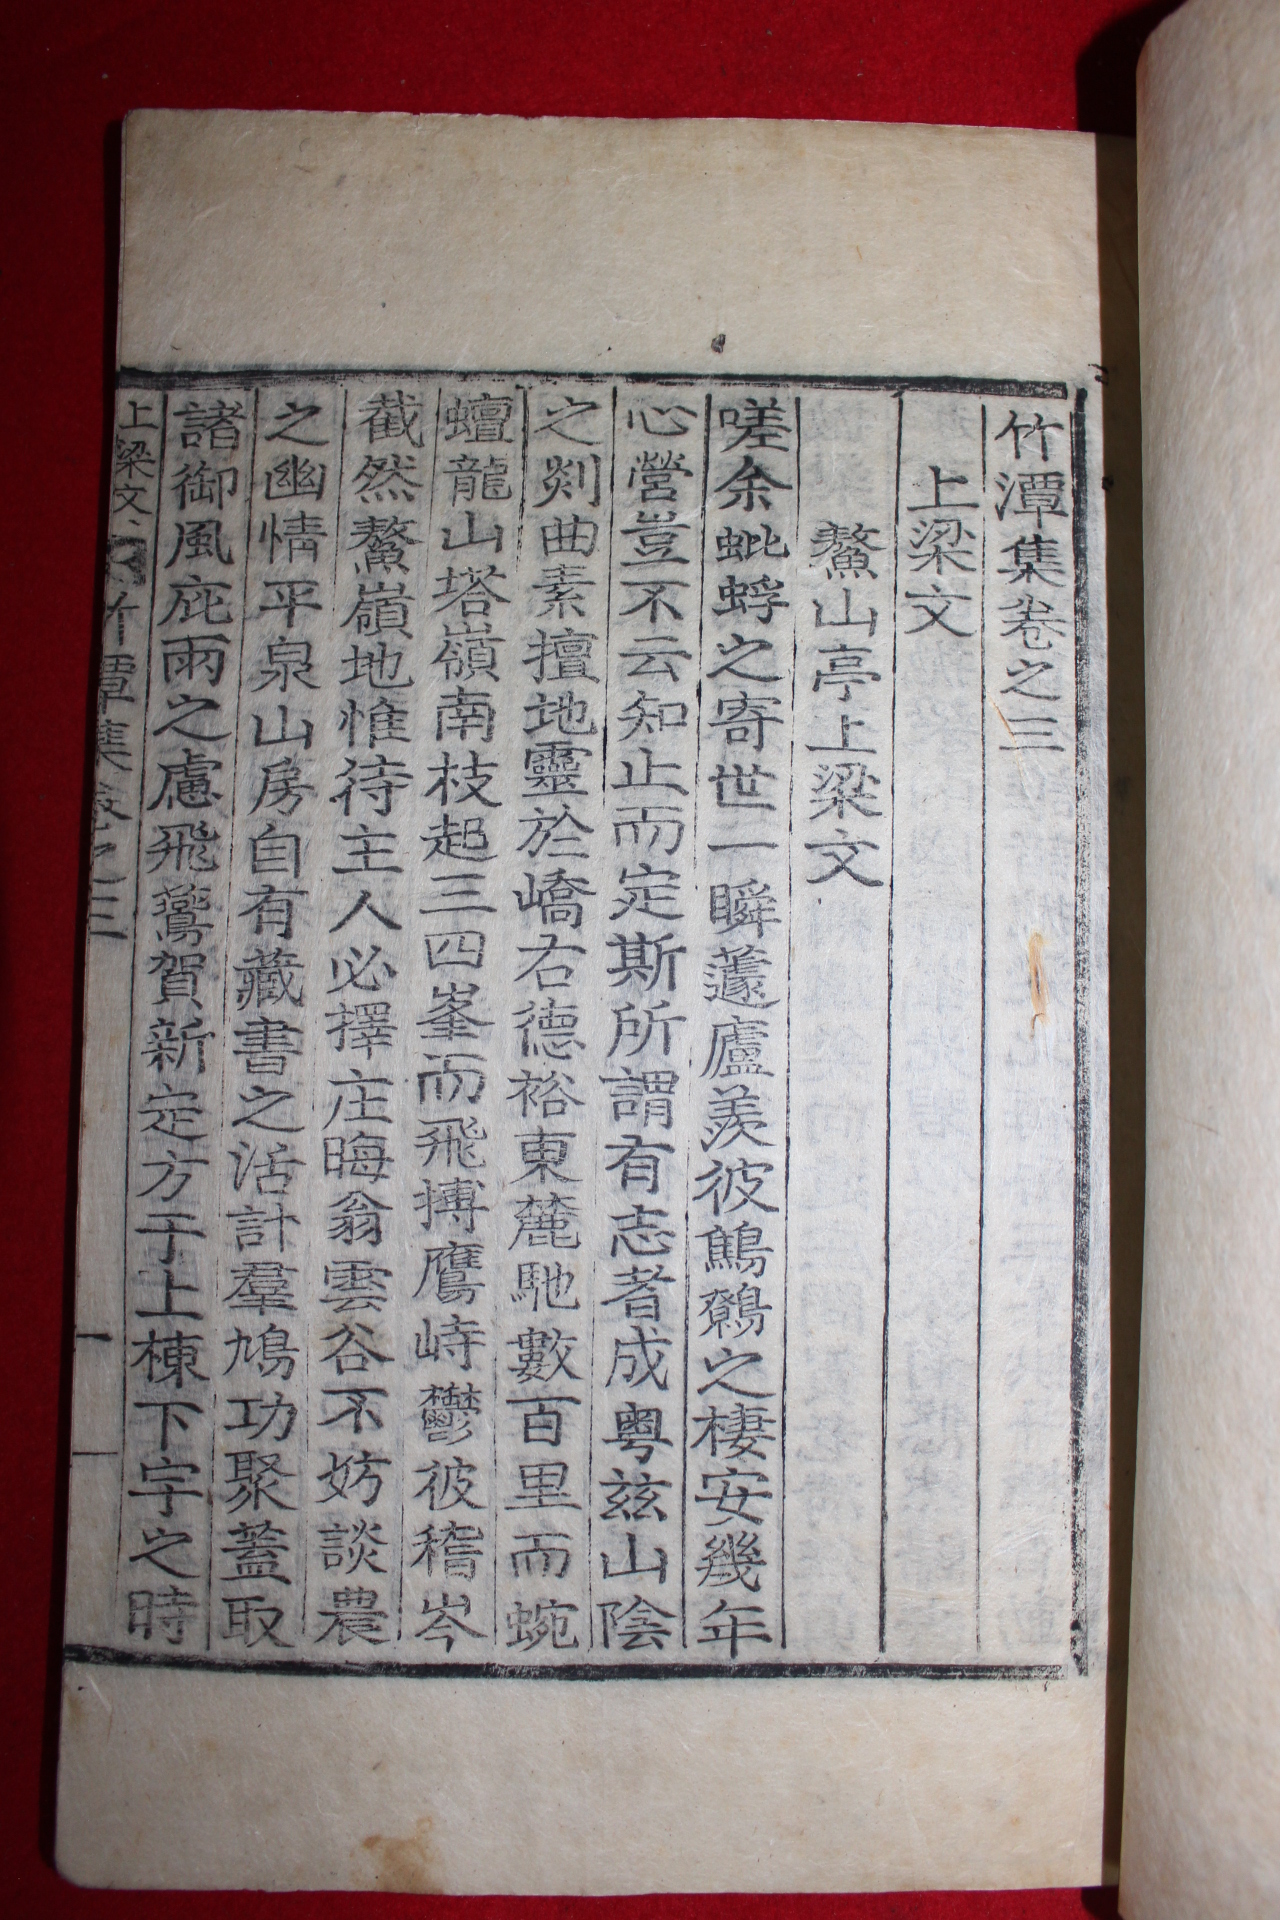 竹潭集卷之三
上梁文
鰲山亭上梁文
嗟余蚍蜉之寄世一瞬蘧廬羨彼鷦鷯之棲安幾年
心營豈不云知止而定斯所謂有志者成粤玆山陰
之剡曲素擅地靈於嶠右德裕東麓馳數百里而蜿
蟺龍山塔嶺南枝起三四峯而飛搏鷹峙鬱彼稽岑
截然鰲嶺地惟待主人必擇庄晦翁雲谷不妨談農
之幽情平泉山房自有藏書之活計羣鳩功聚蓋取
諸御風庇雨之慮飛鸞賀新定方于上棟下宇之時
上梁文、 竹潭集卷之三 一